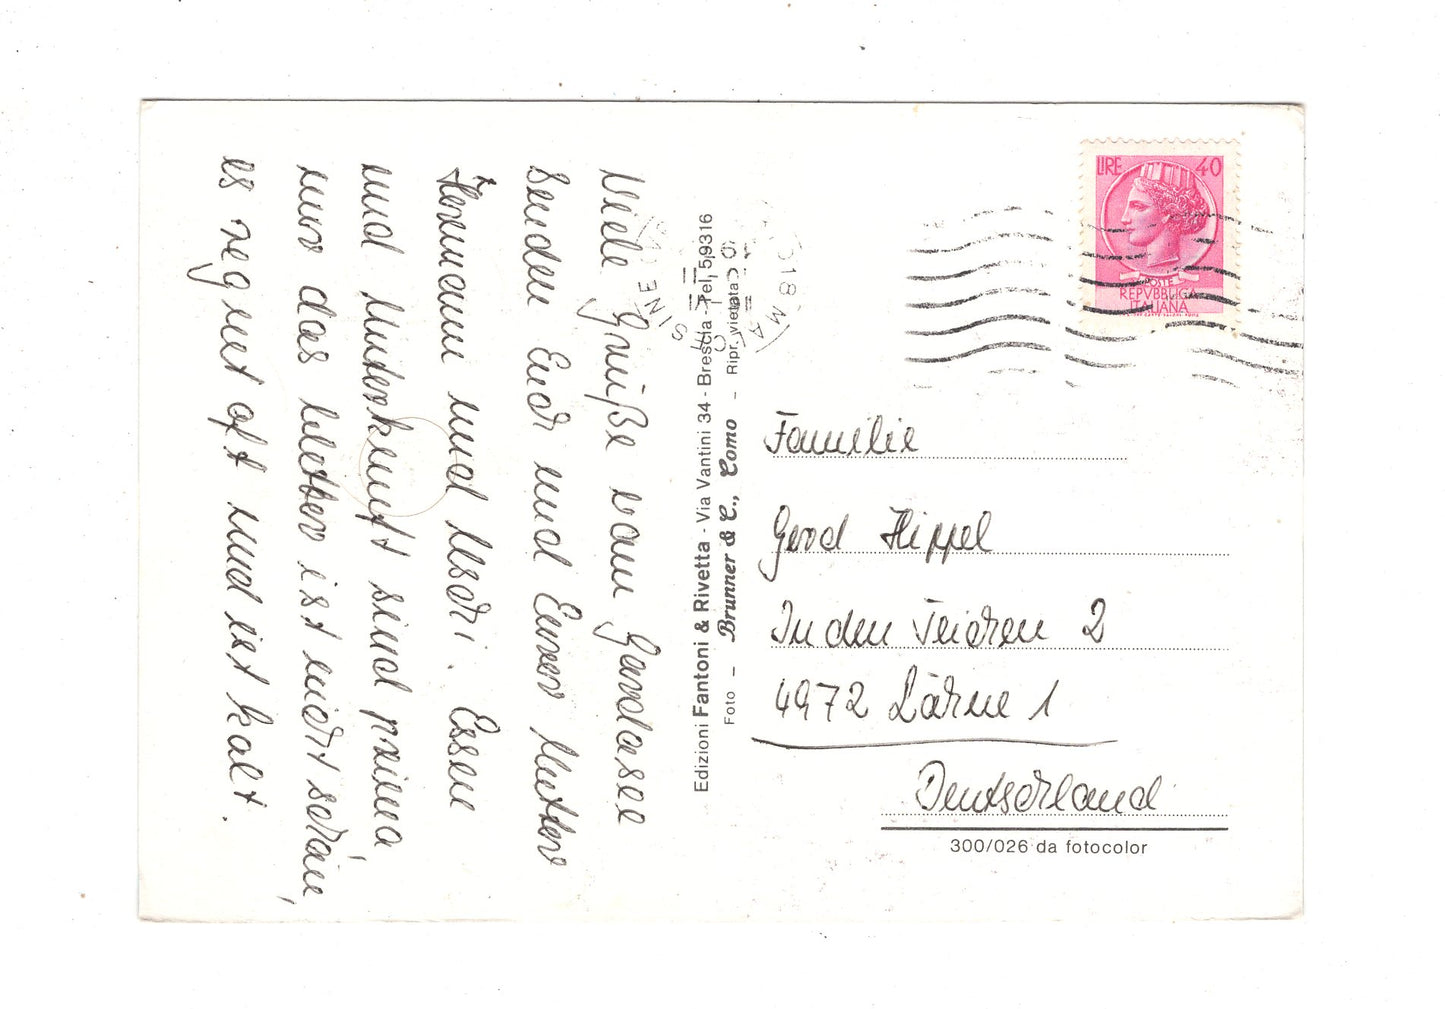 Viele Grüße vom Gardasee
senden Euch und Eurer Mutter
Hermann und Uschi. Essen
und Unterkunft sind prima
nur das Wetter ist nicht schön,
es regnet oft und ist kalt.
Edizioni Fantoni & Rivetta - Via Vantini 34 - Brescia - Tel. 59316
Foto - Brunner & C., Como - Ripr. vietata
MALCESINE
LIRE 40
POSTE
REPVBBLICA
ITALIANA
Familie
Gerd Hippel
In den Teichen 2
4972 Löhne 1
Deutschland
300/026 da fotocolor